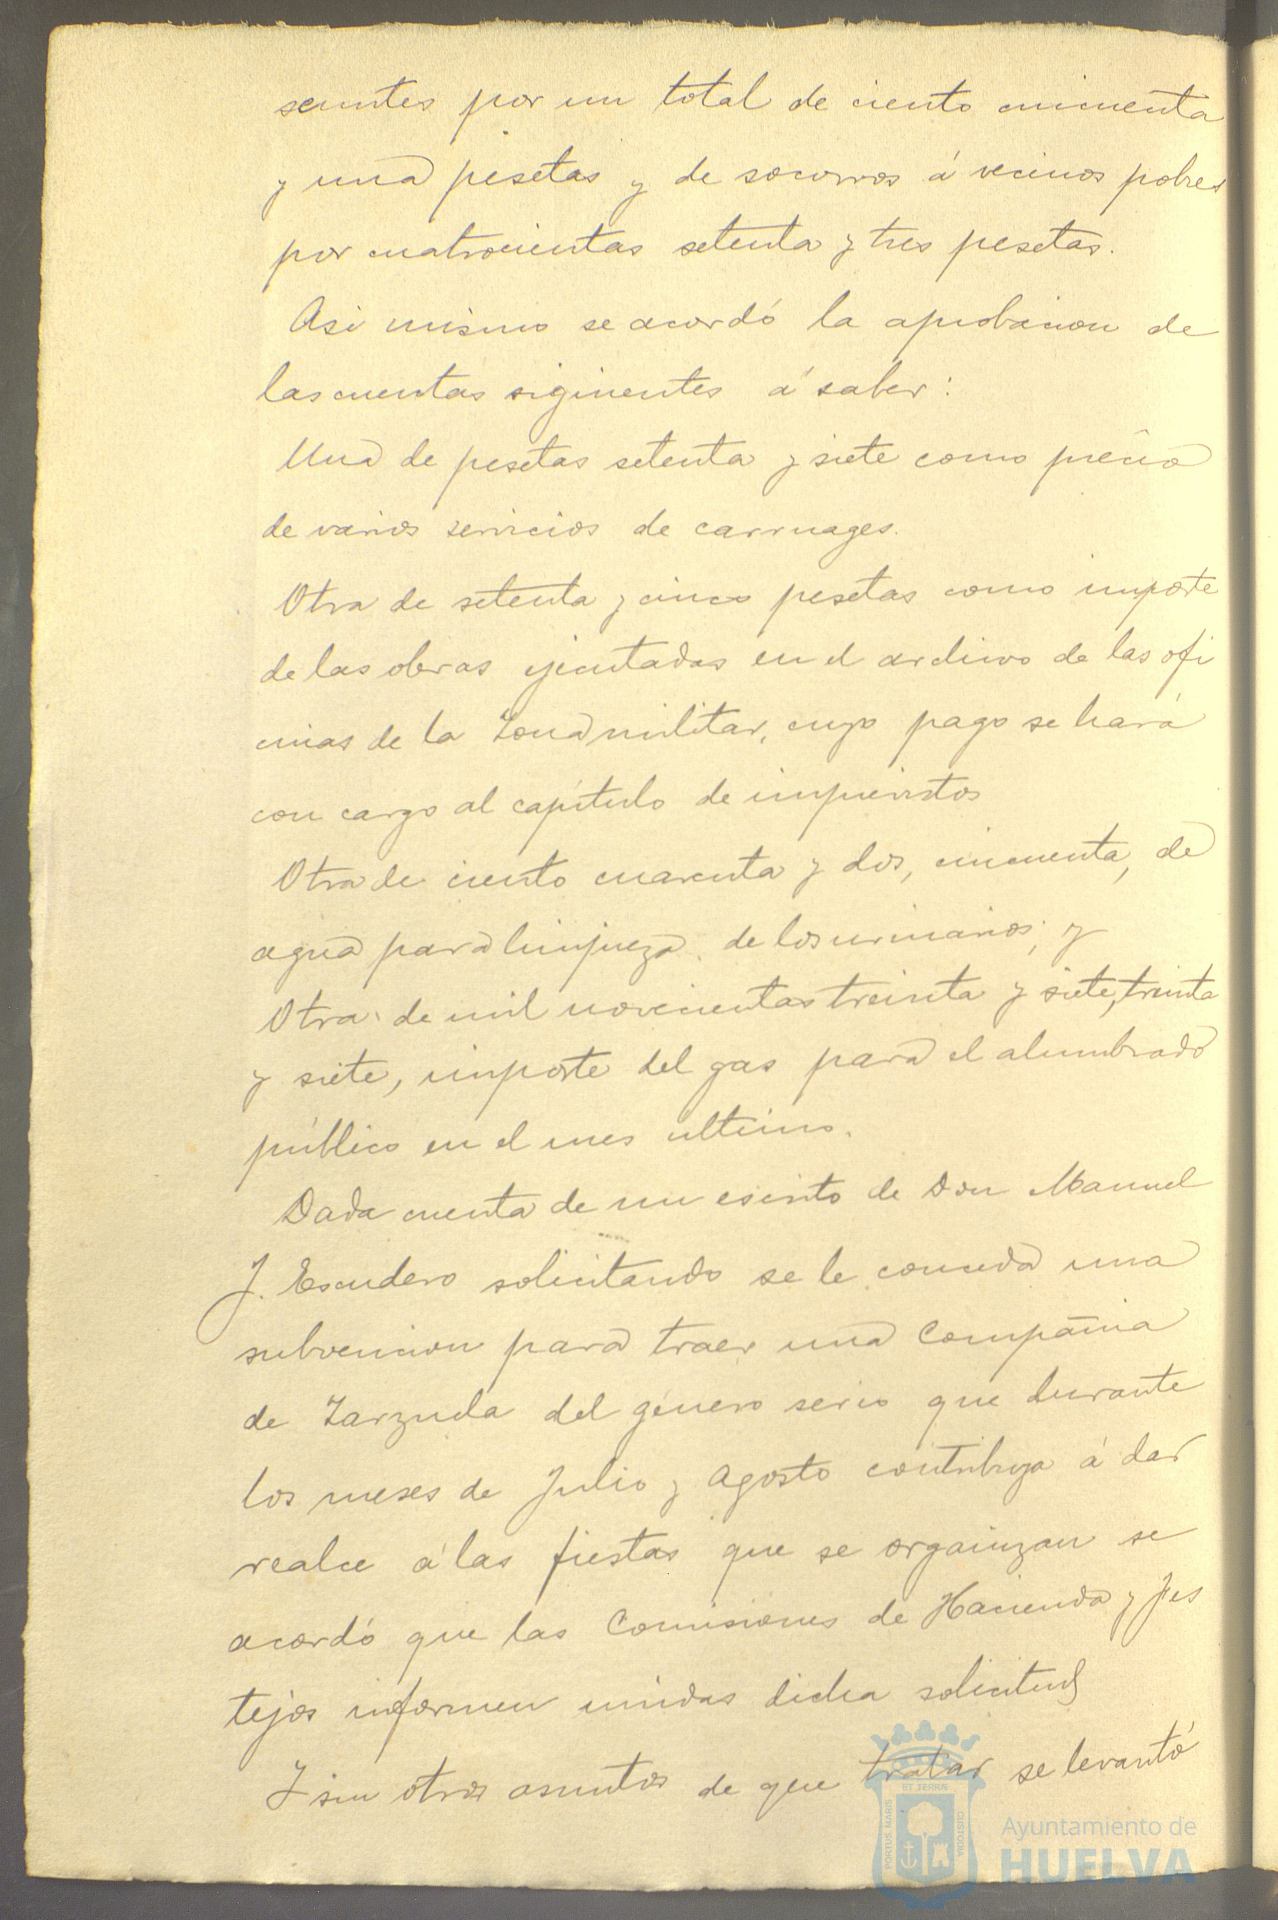 seuntes por un total de ciento cincuenta
y una pesetas y de socorros á vecinos pobres
por cuatrocientas setenta y tres pesetas.
Asi mismo se acordó la aprobacion de
las cuentas siguientes á saber:
Una de pesetas setenta y siete como precio
de varios servicios de carruages.
Otra de setenta y cinco pesetas como importe
de las obras ejecutadas en el archivo de las ofi
cinas de la Zona militar, cuyo pago se hará
con cargo al capítulo de imprevistos
Otra de ciento cuarenta y dos, cincuenta, de
agua para limpieza de los urinarios; y
Otra de mil novecientas treinta y siete, treinta
y siete, importe del gas para el alumbrado
público en el mes ultimo.
Dada cuenta de un escrito de Don Manuel
J. Escudero solicitando se le conceda una
subvencion para traer una Compañia
de Zarzuela del género serio que durante
los meses de Julio y Agosto contribuya á dar
realce á las fiestas que se organizan se
acordó que las Comisiones de Hacienda y Fes
tejos informen unidas dicha solicitud
Y sin otros asuntos de que tratar se levantó
ET TERRIS
PORTUS MARIS
CUSTODIA
Ayuntamiento de
HUELVA